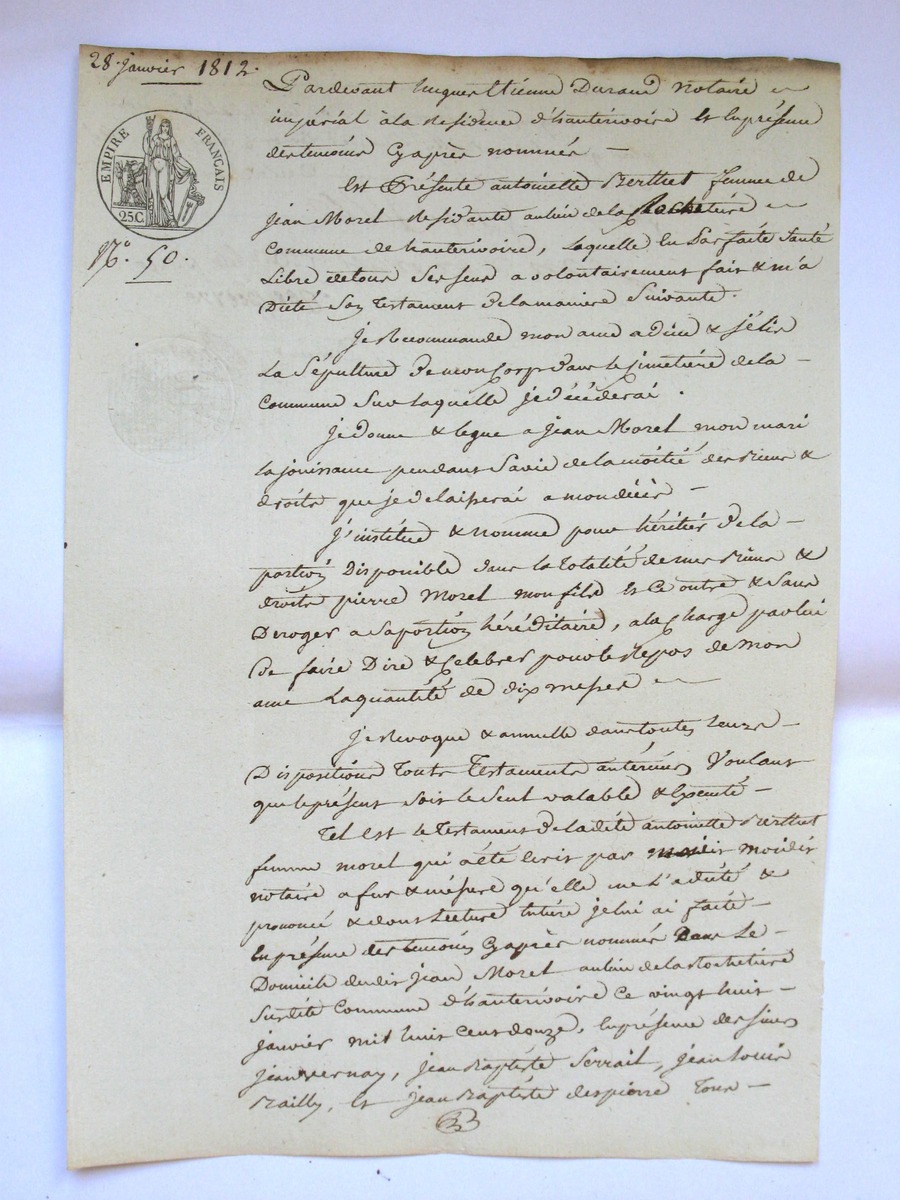 28. janvier 1812.
EMPIRE FRANÇAIS
25C.
N.º 50.
Pardevant hugues Etienne Durand Notaire
impérial à la Residence d'hauterivoire et En présence
des temoins Cyaprès nommés
Est Présente antoinette Berthet femme de
jean Morel Residante au lieu de la Rochetiére
Commune de hauterivoire, laquelle En Parfaite Santé
Libre de tous Ses sens a volontairement fait & m'a
Dicté Son Testament de la maniere Suivante.
Je Recommande mon ame a dieu & j'élis
La Sépulture de mon Corps dans le Cimetiére de la
Commune Sur laquelle je décéderai.
Je donne & legue a jean Morel mon mari
la jouissance pendant Sa vie de la moitié des Biens &
droits que je delaisserai a mon décès
J'institue & nomme pour héritier de la
portion Disponible dans la totalité de mes Biens &
droits pierre Morel mon fils Et Ce outre & Sans
Deroger a Sa portion héréditaire, a la Charge par lui
De faire Dire & Celebrer pour le Repos de mon
ame La quantité de dix messes
Je Revoque & annulle dans toutes leurs
Dispositions Touts Testaments antérieurs Voulant
que le présent soit le Seul valable & Executé
Tel est le Testament de la dite antoinette Berthet
femme morel qui a été Ecrit par moidit
notaire a fur & mésure qu'elle me l'a dicté &
prononcé & dont Lecture entiére je lui ai faite
En présence des temoins Cyaprès nommés Dans Le
Domicile dudit jean Morel au lieu de la Rochetiére
Susdite Commune d'hauterivoire Ce vingt huit
janvier mil huit Cent douze, En présence des sieurs
jean vernay, jean Baptiste Serrail, jean Louis
Bailly, Et jean Baptiste despierre Tous